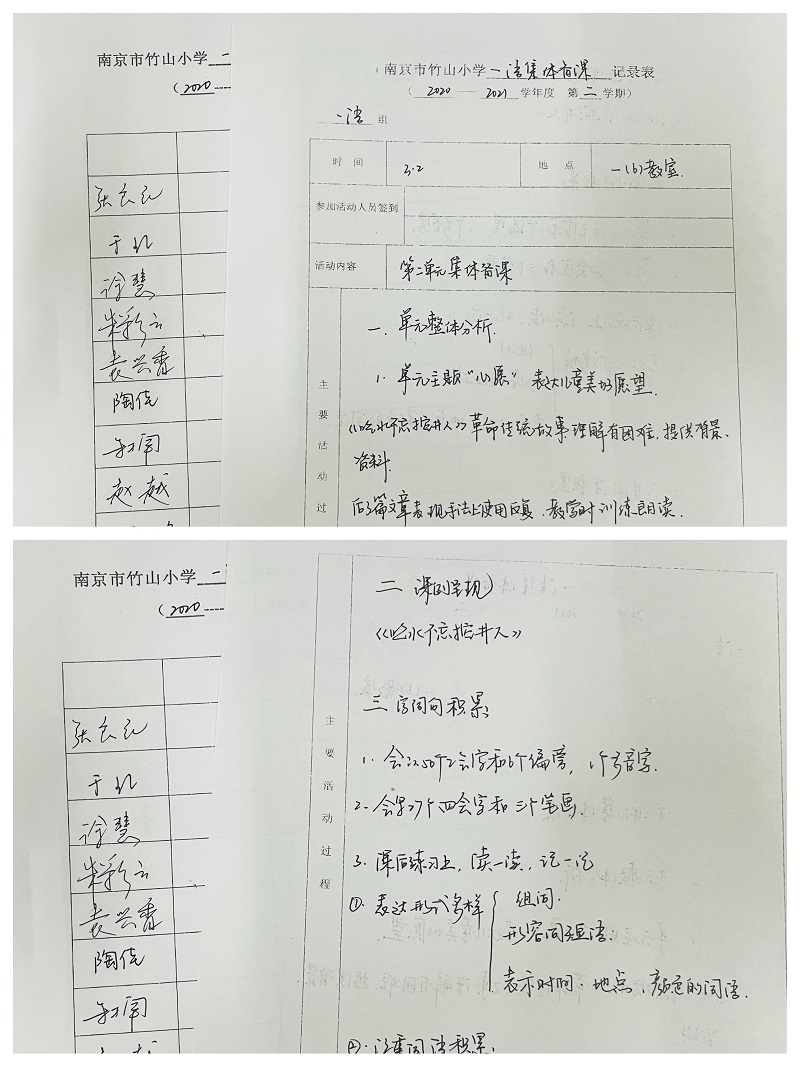 南京市竹山小学 二
（2020
张
于
徐慧
朱彩云
袁兴香
陶佳
赵越
南京市竹山小学 一语集体备课 记录表
（ 2020 — 2021 学年度 第 二 学期）
一语 组
时 间 3.2 地 点 一(6)教室.
参加活动人员签到
活动内容 第二单元集体备课
主要活动过
一. 单元整体分析.
1. 单元主题“心愿” 表达儿童美好愿望.
《吃水不忘挖井人》革命传统故事,理解有困难,提供背景、
资料.
后3篇文章表现手法上使用反复.教学时训练朗读.
南京市竹山小学 二
（2020
张
于
徐慧
朱彩云
袁兴香
陶佳
主要活动过程
二. 课例呈现
《吃水不忘挖井人》
三. 字词句积累
1. 会认50个2会字和6个偏旁, 1个多音字.
2. 会写27个四会字和三个笔画.
3. 课后练习上, 读一读, 记一记
①. 表达形式多样
组词.
形容词短语.
表示时间.地点.颜色的词语.
②. 注重词语积累.